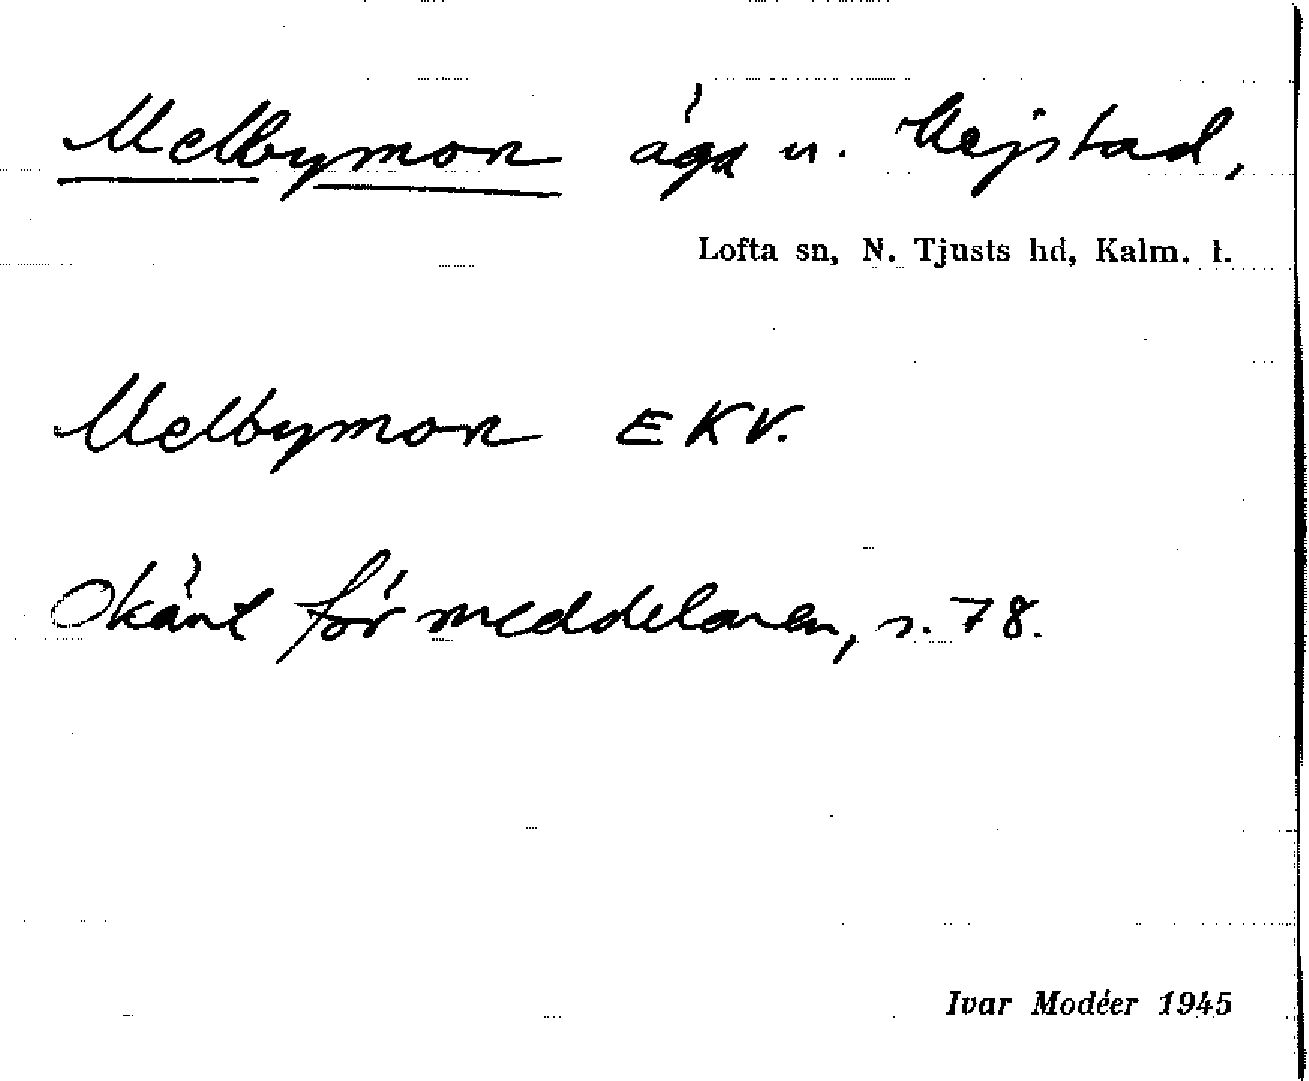 Melbymon äga u. Vejstad,
Lofta sn, N. Tjusts hd, Kalm. l.
Melbymon EKV.
Okänt för meddelaren, s. 78.
Ivar Modéer 1945